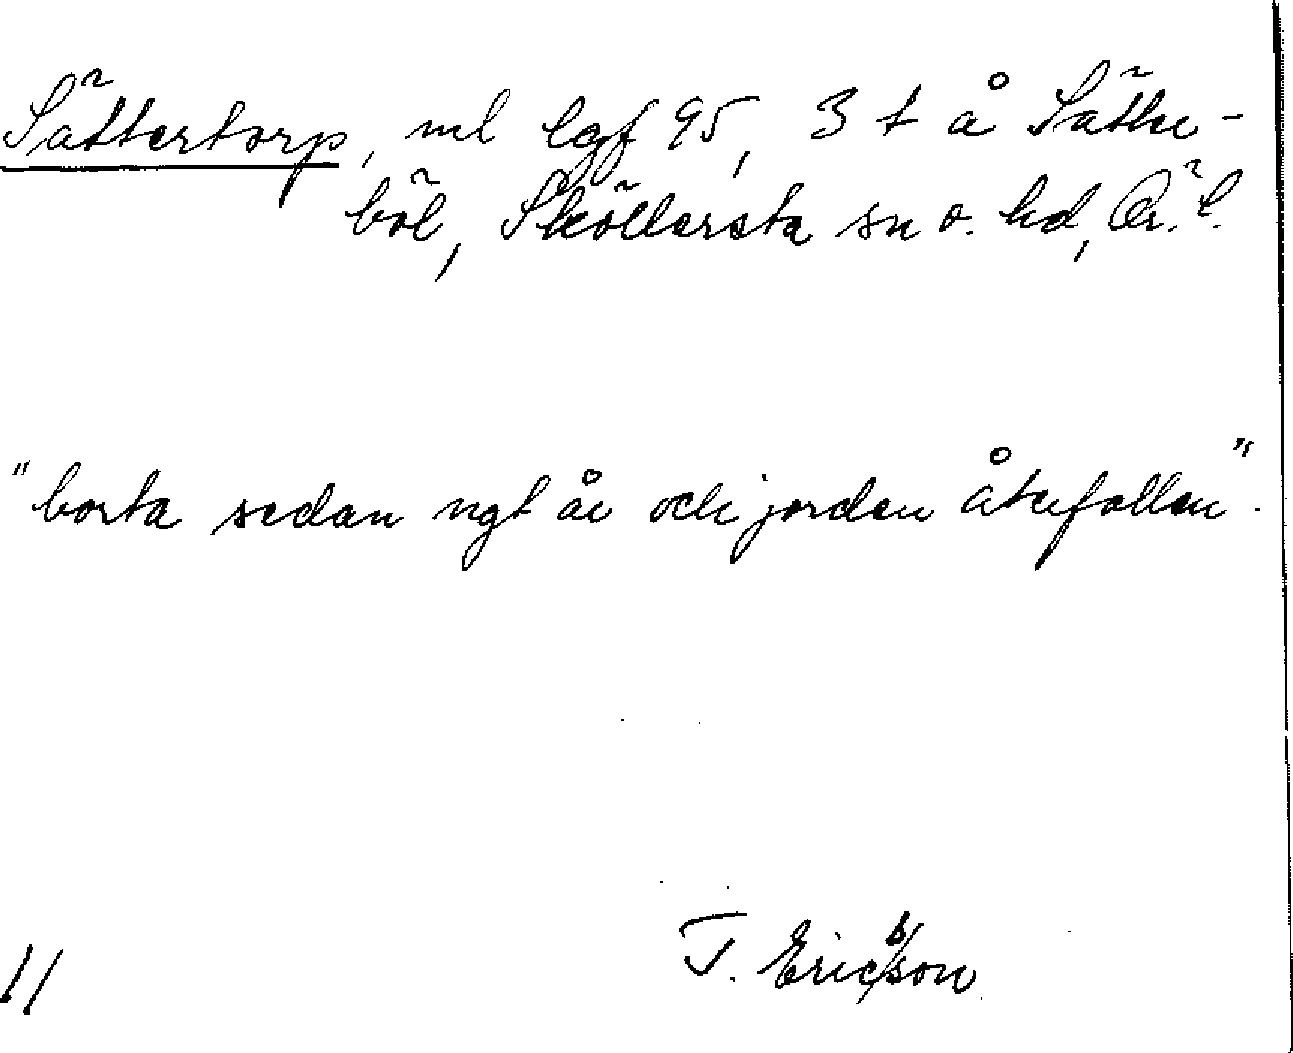 Sättertorp, ml lgf 95, 3 t å Sätter-
böl, Sköllersta sn o. hd, Ör. l.
"borta sedan ngt år och jorden återfallen".
T. Ericsson
11